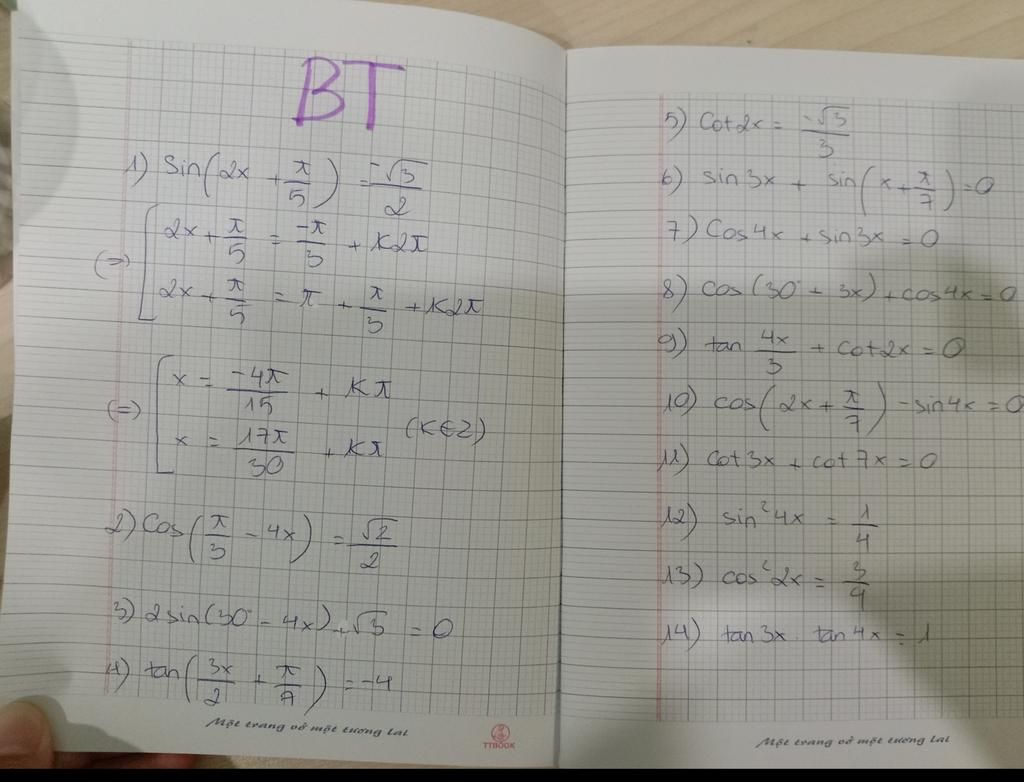 BT
1) Sin(2x + π/5) = -√3/2
(=) [ 2x + π/5 = -π/3 + K2π
2x + π/5 = π + π/3 + K2π
(=) [ x = -4π/15 + Kπ
x = 17π/30 + Kπ (K∈Z)
2) Cos(π/3 - 4x) = √2/2
3) 2sin(30° - 4x) + √3 = 0
4) tan(3x/2 + π/7) = -4
Một trang vở một tương lai
TTBOOK
5) Cot2x = -√3/3
6) sin3x + sin(x + π/7) = 0
7) Cos4x + sin3x = 0
8) cos(30° + 3x) + cos4x = 0
9) tan 4x/3 + cot2x = 0
10) cos(2x + π/7) - sin4x = 0
11) cot3x + cot7x = 0
12) sin²4x = 1/4
13) cos²2x = 3/4
14) tan3x . tan4x = 1
Một trang vở một tương lai